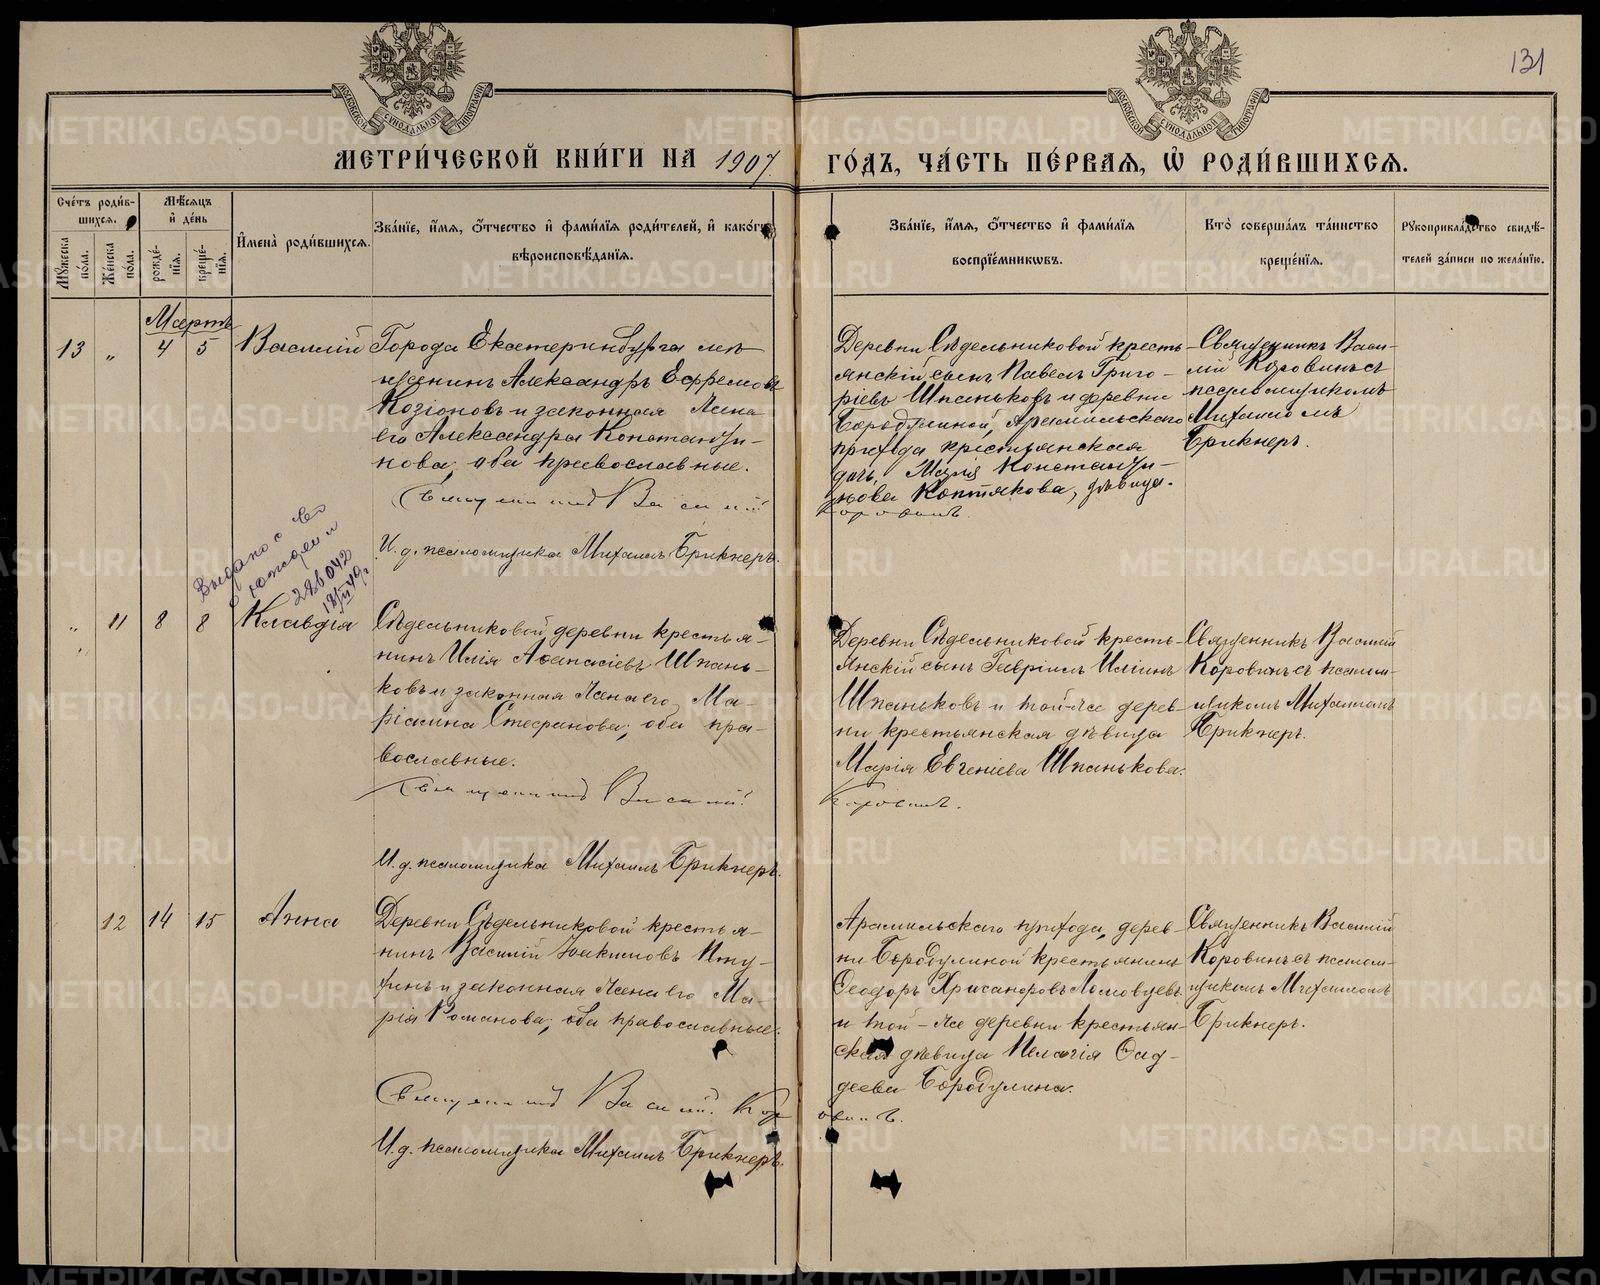 131
МОСКОВСКОЙ СѴНОДАЛЬНОЙ ТИПОГРАФІИ
МОСКОВСКОЙ СѴНОДАЛЬНОЙ ТИПОГРАФІИ
МЕТРИ́ЧЕСКОЙ КНИ́ГИ НА 1907 ГО́ДЪ, ЧА́СТЬ ПЕ́РВАЯ, Ѽ РОДИ́ВШИХСѦ.
Сче́тъ роди́в-
шихся.
Мꙋжеска по́ла.
Же́нска по́ла.
Мѣ́сяцъ и҆ де́нь
рожде́-
нїя.
креще́-
нїя.
И҆мена̀ роди́вшихся.
Зва́нїе, и҆́мя, ѻ҆́тчество и҆ фами́лїя роди́телей, и҆ како́гѡ
вѣроисповѣ́данїя.
Зва́нїе, и҆́мя, ѻ҆́тчество и҆ фами́лїя
воспрїе́мникѡвъ.
Кто̀ соверша́лъ та́инство
креще́нїя.
Рꙋкоприкла́дство свидѣ́-
телей за́писи по жела́нїю.
Мартъ
13 „ 4 5 Василій
Города Екатеринбурга мѣ-
щанинъ Александръ Ефремовъ
Козіоновъ и законная жена
его Александра Константи-
нова, оба православные.
Священникъ Василій Коровинъ.
И. д. псаломщика Михаилъ Брикнеръ.
Деревни Сѣдельниковой кресть-
янскій сынъ Павелъ Григо-
ріевъ Шпаньковъ и деревни
Бородулиной, Арамильскаго
прихода крестьянская
дочь, Марія Константи-
нова Коптякова, дѣвица.
Священникъ Васи-
лій Коровинъ съ
псаломщикомъ
Михаиломъ
Брикнеръ.
Выдано с
о рождении
286042
„ 11 8 8 Клавдія
Сѣдельниковой деревни крестья-
нинъ Илія Аѳанасіевъ Шпань-
ковъ и законная жена его Ма-
ріамна Стефанова, оба пра-
вославные.
Священникъ Василій Коровинъ.
И. д. псаломщика Михаилъ Брикнеръ.
Деревни Сѣдельниковой кресть-
янскій сынъ Гавріилъ Иліинъ
Шпаньковъ и той-же дерев-
ни крестьянская дѣвица
Марія Евгеніева Шпанькова.
Священникъ Василій
Коровинъ съ псалом-
щикомъ Михаиломъ
Брикнеръ.
12 14 15 Анна
Деревни Сѣдельниковой крестья-
нинъ Василій Іоакимовъ Пту-
хинъ и законная жена его Ма-
рія Романова, оба православные.
Священникъ Василій Коровинъ.
И. д. псаломщика Михаилъ Брикнеръ.
Арамильскаго прихода, дерев-
ни Бородулиной крестьянинъ
Ѳеодоръ Хрисанѳовъ Ломовцевъ
и той-же деревни крестьян-
ская дѣвица Пелагія Ѳад-
деева Бородулина.
Священникъ Василій
Коровинъ съ псалом-
щикомъ Михаиломъ
Брикнеръ.
METRIKI.GASO-URAL.RU